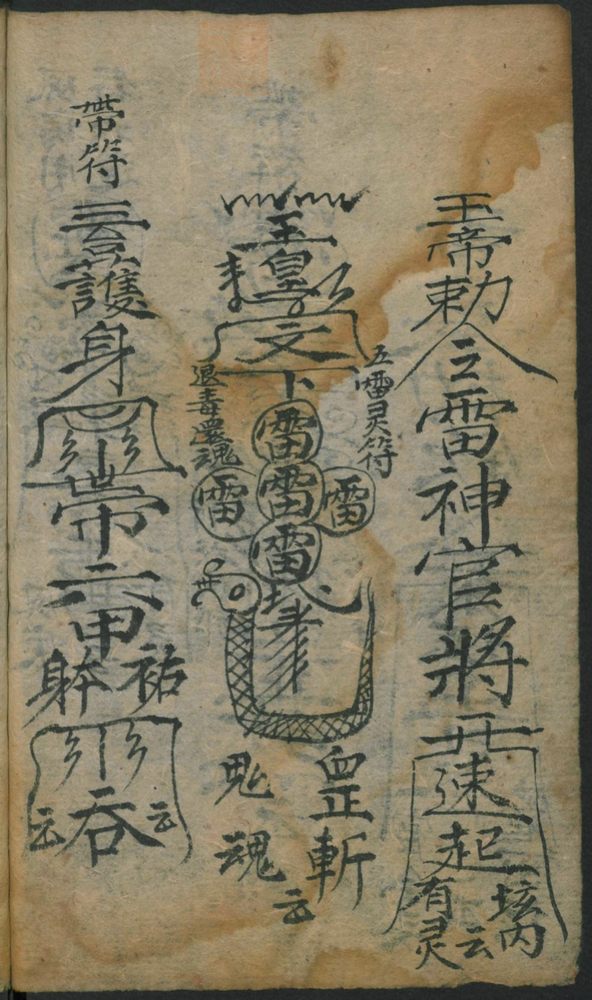 玉帝勅令雷神官將
速起
境内
有灵云
玉皇
文
下
五雷灵符
退毒還魂
雷
雷
雷雷雷
斬
鬼
魂
云
帶符
護身
帶六甲
祐躰
吞
云云